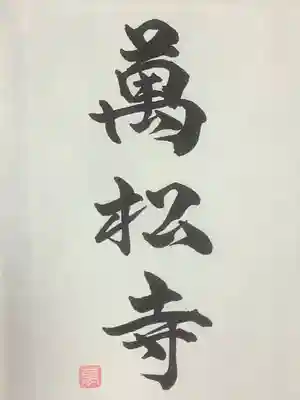 萬松寺